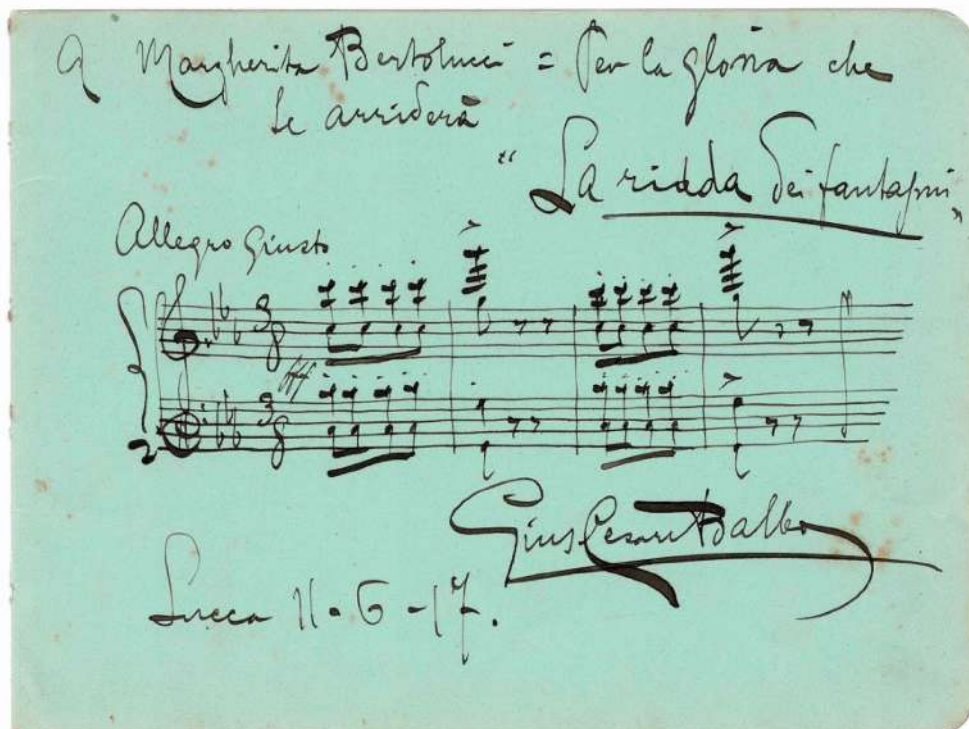 A Margherita Bertolucci = Per la gloria che
le arriderà
"La ridda dei fantasmi"
Allegro Giusto
3 8
fff
3 8
Gius Cesare Balbo
Lucca 11-6-17.